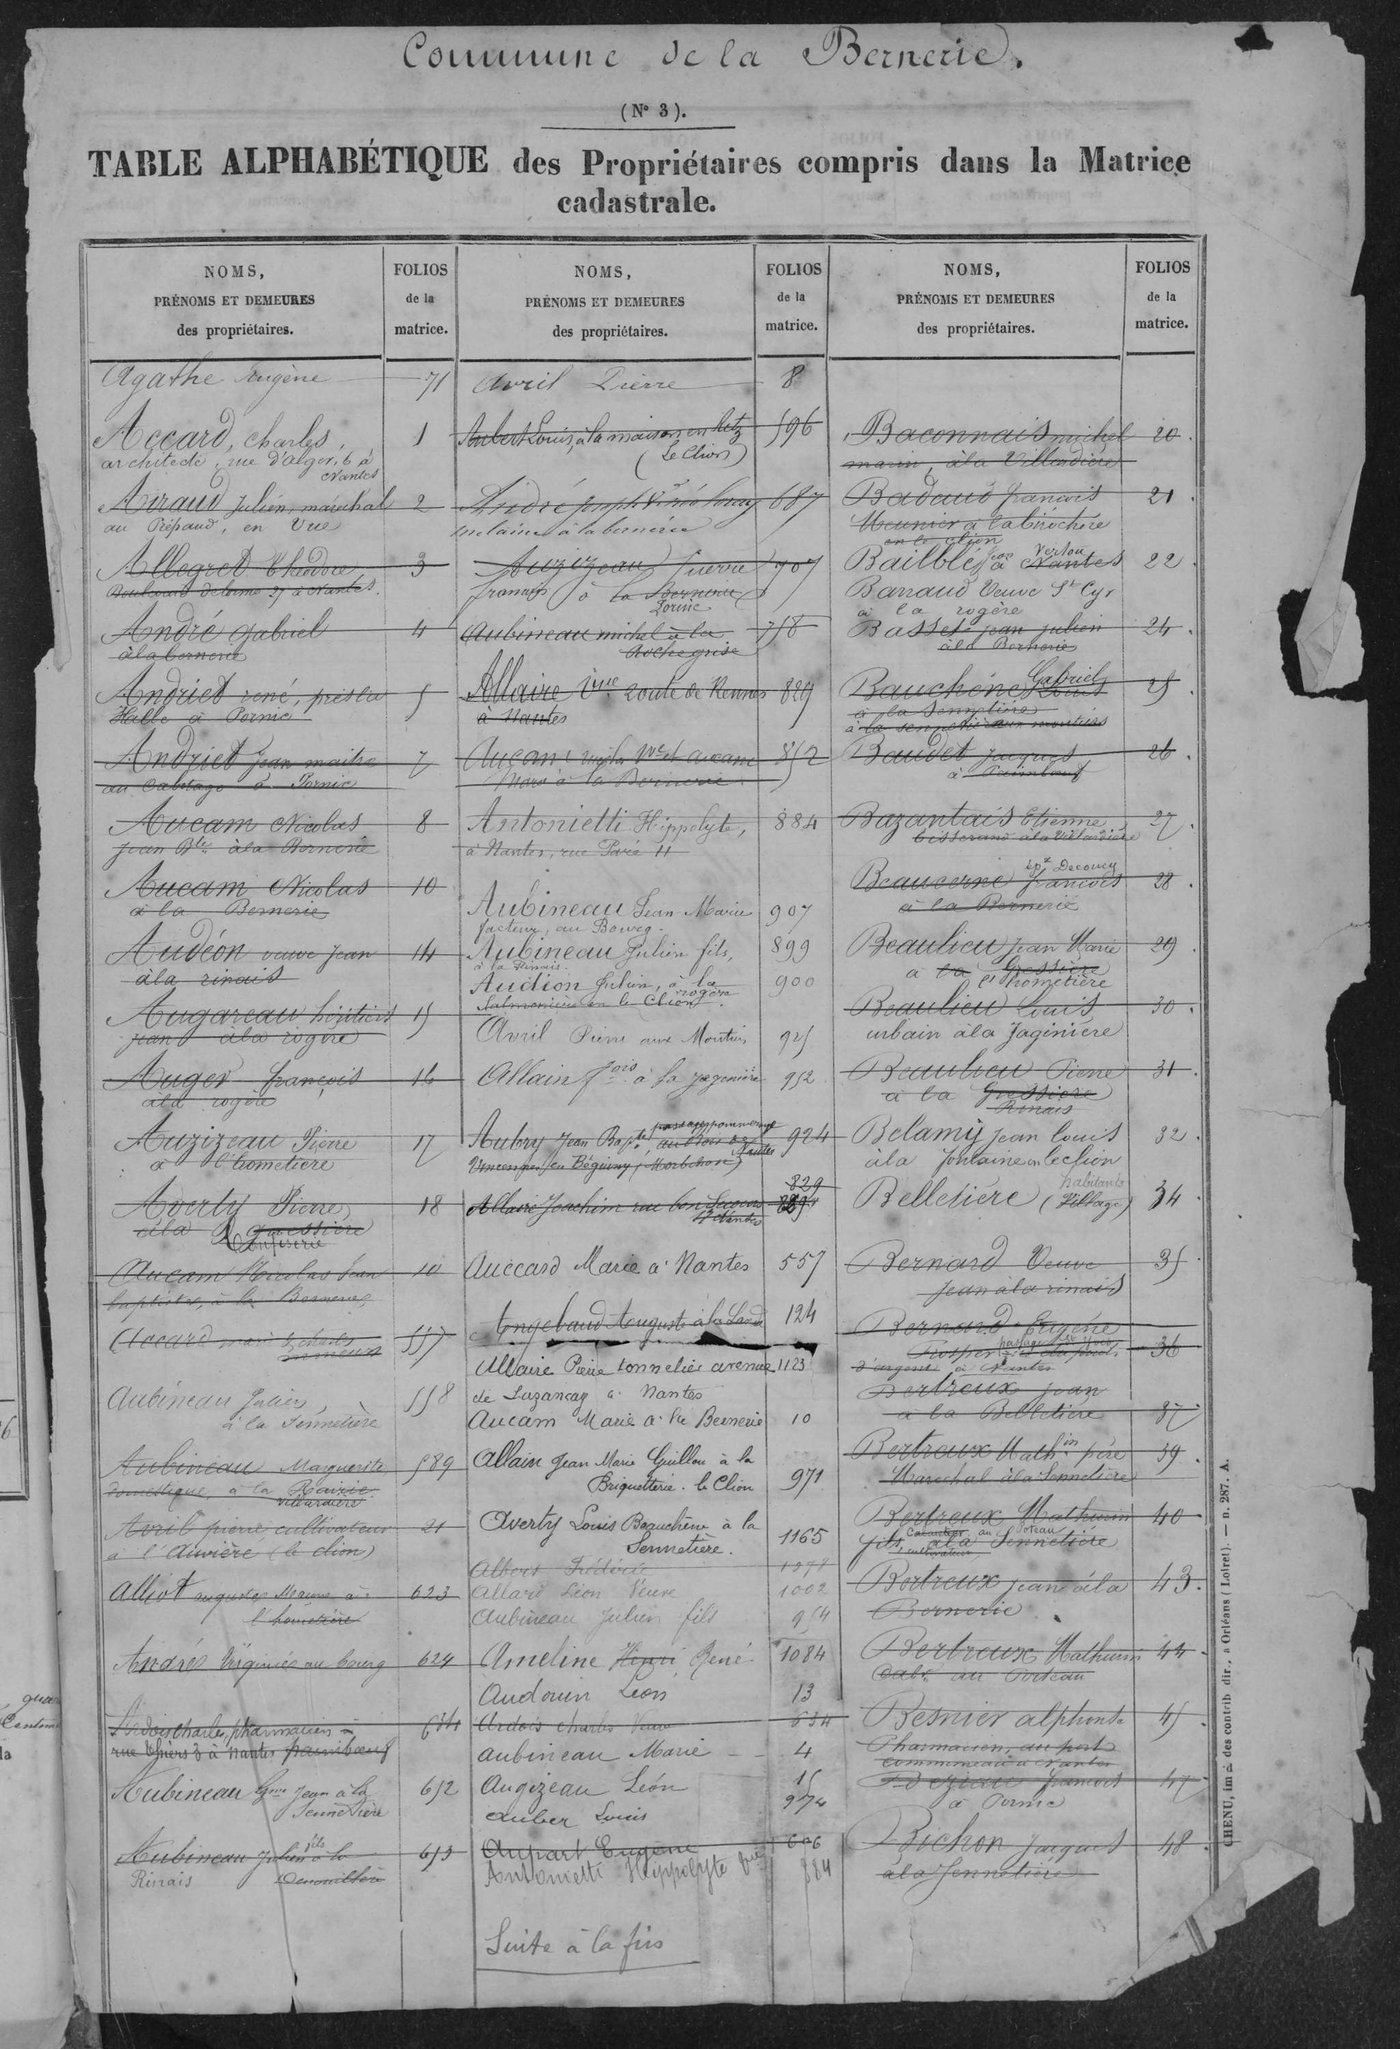 Commune de la Bernerie.
(Nº 3).
TABLE ALPHABÉTIQUE des Propriétaires compris dans la Matrice
cadastrale.
NOMS,
PRÉNOMS ET DEMEURES
des propriétaires.
FOLIOS
de la
matrice.
Agathe Eugène 71
Accard, Charles, 1
architecte, rue d'alger, 6 à
Nantes
Airaud Julien, maréchal 2
au Prépaud, en Vue
Allegret Théodore 3
Boulevard Delorme 37 à Nantes.
André Gabriel 4
à la bernerie
Andriet rené, près la 5
Halle à Pornic
Andriet Jean maitre 7
au Cabotage à Pornic
Aucam Nicolas 8
Jean Bte à la Bernerie
Aucam Nicolas 10
à la Bernerie
Audéon veuve Jean 14
à la rinais
Augareau héritiers 15
jean à la rogère
Auger françois 16
à la rogère
Auzizeau Pierre 17
à l'hometière
Averty Pierre 18
à la gressière
Aucam Nicolas Jean 10
baptiste, à la Bernerie
Accard marie Charles 557
Aubineau Julien, 558
à la Sennetière
Aubineau Marguerite 589
domestique, à la
Villardière
Avril pierre cultivateur 21
à l'Auvière (le clion)
Alliot auguste 623
l'hometière
Andrés Virginie au bourg 624
Ardois, Charles, pharmacien 634
rue Thiers 3 à Nantes paimbœuf
Aubineau Jean à la 652
Sennetière
Aubineau Julien fils à la 653
Rinais
NOMS,
PRÉNOMS ET DEMEURES
des propriétaires.
FOLIOS
de la
matrice.
Avril Pierre 8
Aubert Louis, à la maison en Retz 596
(Le Clion)
André Joseph 687
à la bernerie
Auzizeau Pierre 707
françois à la Bernerie
Pornic
Aubineau michel à la 758
Roche grise
Allaire Vve route de Rennes 829
à Nantes
Aucam 852
à la Bernerie
Antonietti Hippolyte, 884
à Nantes, rue Paré 11
Aubineau Jean Marie 907
facteur, au Bourg.
Aubineau Julien fils, 899
à la Rinais.
Audion Julien, à la 900
rogère
Salmonière en le Clion.
Avril Pierre aux Moutiers 925
Allain fçois à la Jaginière 952
Aubry Jean Bapte 924
Nantes
Vincennes en Béganny (Morbihan)
829
Allaire Joachim rue bon Secours 829
à Nantes
Auccard Marie à Nantes 557
Angebaud Auguste à la 124
Allaire Pierre tonnelier avenue 1123
de Luzançay à Nantes
Aucam Marie à la Bernerie 10
Allain Jean Marie Guillou à la
Briquetterie. le Clion 971
Averty Louis Beauchêne à la
Sennetière. 1165
Albert Frédéric
Allard Léon Veuve 1002
Aubineau Julien fils 954
Ameline Henri René 1084
Audouin Léon 13
Ardois charles Veuve 634
Aubineau Marie 4
Augizeau Léon 15
Auber Louis 974
Aupart Eugène 606
Antonietti Hyppolyte Vve 884
Suite à la fin
NOMS,
PRÉNOMS ET DEMEURES
des propriétaires.
FOLIOS
de la
matrice.
Baconnais michel 20.
marin, à la Villardière
Badaud françois 21.
Meunier à la birochère
en le clion
Bailblé Jean à Nantes 22.
Vertou
Barraud Veuve St Cyr
à la rogère
Basset jean julien 24.
à la Bernerie
Bauchêne Louis 25.
Gabriel
à la Sennetière
à la sennetière aux moutiers
Baudet Jacques 26.
à Paimboeuf
Bazantais Etienne 27.
tisserand à la Villardière
Beaucerne françois 28.
épx Decourcy
à la Bernerie
Beaulieu Jean Marie 29.
à la Gressière
l'hometière
Beaulieu Louis 30.
urbain à la Jaginière
Beaulieu Pierre 31.
à la Gressière
Rinais
Belamy Jean louis 32.
à la fontaine en le clion
Belletière (Village) 34
habitants
Bernard Veuve 35.
Jean à la rinais
Bernard Eugène
36
d'argent à Nantes
Bertreux jean
à la Belletière 37
Bertreux Mathin père 39.
Maréchal à la Sennetière
Bertreux Mathurin 40
au Poteau
fils, à la Sennetière
cultivateur
Bertreux jean à la 43.
Bernerie
Bertreux Mathurin 44.
Cabr au Poteau
Besnier alphonse 45.
Pharmacien, au port
communeau à Nantes
Beziau francois 47.
à Pornic
Bichon Jacques 48.
à la Sennetière
CHENU, im d des contrib dir., à Orléans (Loiret). — n. 287. A.